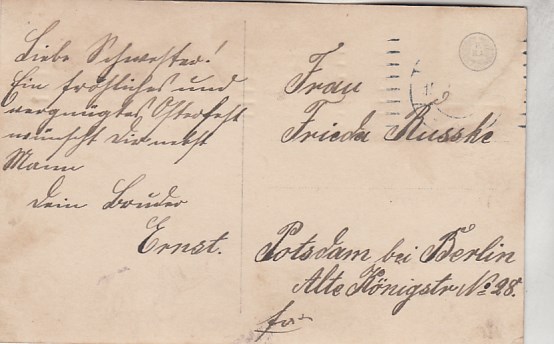 Liebe Schwester!
Ein fröhliches und
vergnügtes Osterfest
wünscht Dir nebst
Mann
Dein Bruder
Ernst.
Frau
Frieda Russke
Potsdam bei Berlin
Alte Königstr No 28.